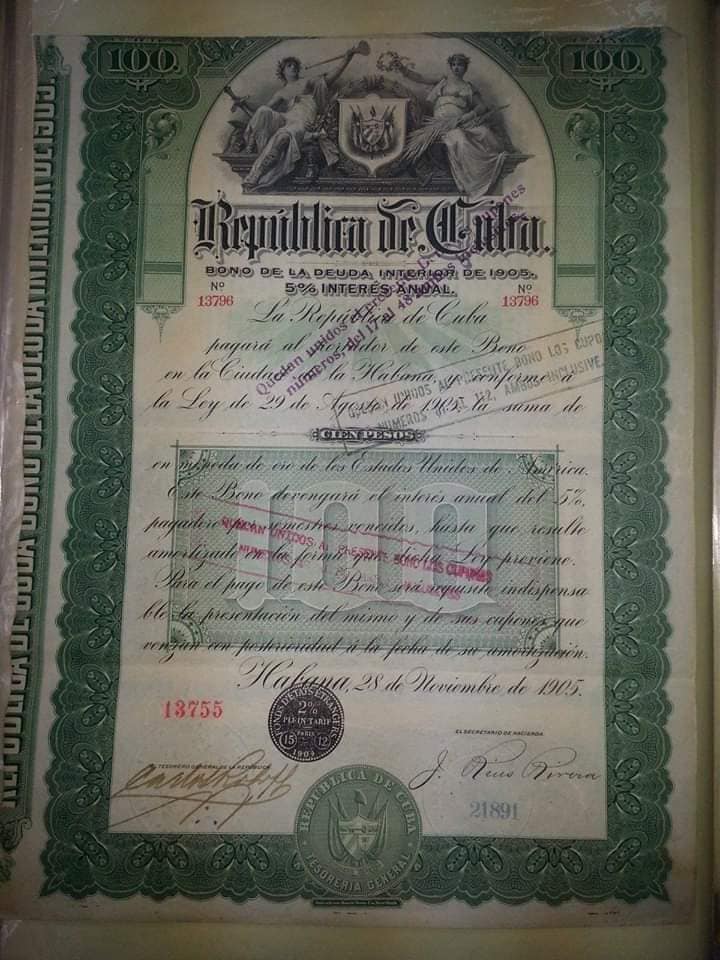 100.
100.
República de Cuba.
BONO DE LA DEUDA INTERIOR DE 1905.
5% INTERÉS ANUAL.
Nº
13796
Nº
13796
La República de Cuba
pagará al portador de este Bono
en la Ciudad de la Habana, y conforme á
la Ley de 29 de Agosto de 1905, la suma de
CIEN PESOS
en moneda de oro de los Estados Unidos de América.
Este Bono devengará el interés anual del 5%,
pagadero por semestres vencidos, hasta que resulte
amortizado en la forma que dicha Ley previene.
Para el pago de este Bono será requisito indispensa
ble la presentación del mismo y de sus cupones que
venzan con posterioridad á la fecha de su amortización.
100
Habana, 28 de Noviembre de 1905.
Quedan unidos al presente
números, del 17 al 48
QUEDAN UNIDOS AL PRESENTE BONO LOS CUPO
NUMEROS AL 112, AMBOS INCLUSIVE
QUEDAN UNIDOS AL PRESENTE BONO LOS CUPONES
13755
FONDS D'ETATS ETRANGERS
2%
PLEIN TARIF
PARIS
15 12
1909
EL TESORERO GENERAL DE LA REPUBLICA
Carlos Roloff
EL SECRETARIO DE HACIENDA
J. Rius Rivera
21891
REPUBLICA DE CUBA
TESORERIA GENERAL
REPUBLICA DE CUBA BONO DE LA DEUDA INTERIOR DE 1905.